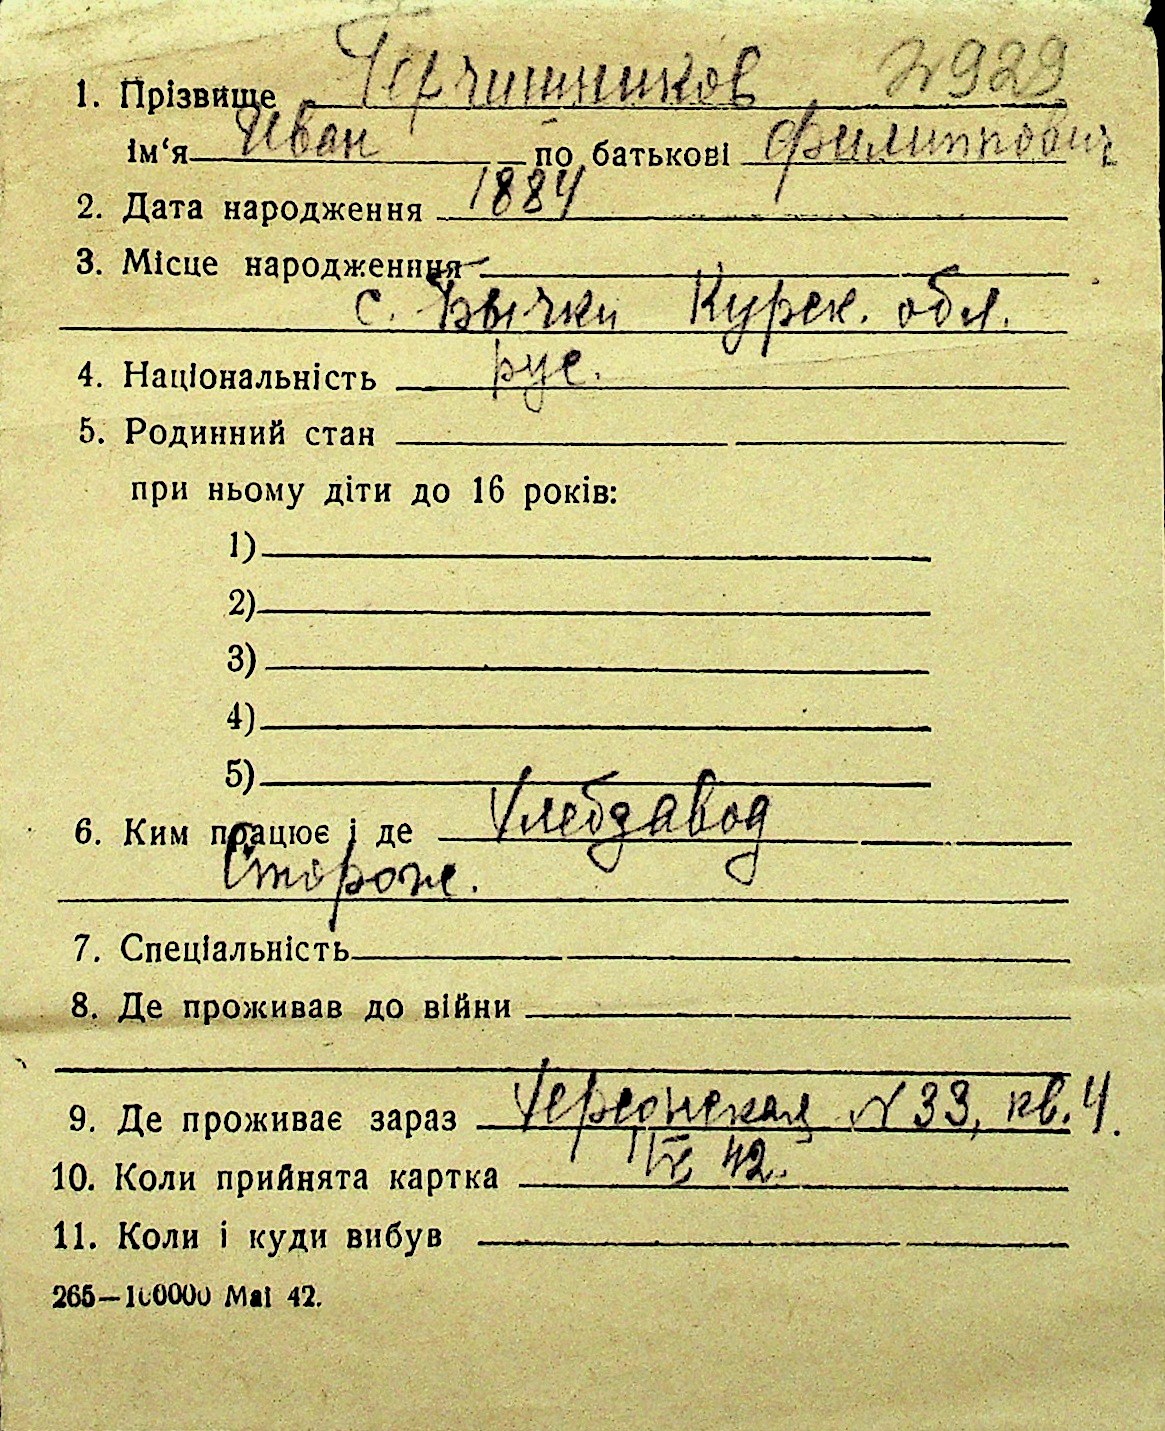 1. Прізвище Герчишников № 929
ім‘я Иван по батькові Филиппович
2. Дата народження 1884
3. Місце народженння
с. Бычки Курск. обл.
4. Національність рус.
5. Родинний стан
при ньому діти до 16 років:
1)
2)
3)
4)
5)
6. Ким працює і де Хлебзавод
Сторож.
7. Спеціальність
8. Де проживав до війни
9. Де проживає зараз Херсонская № 33, кв. 4.
10. Коли прийнята картка 42.
11. Коли і куди вибув
265—100000 Маі 42.